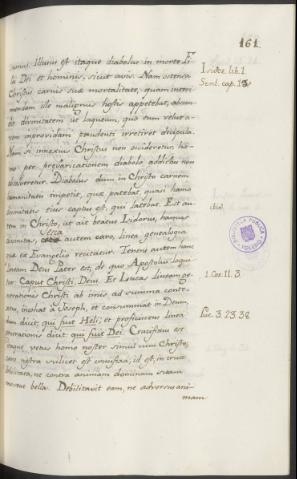 161
carnis. Illusus est itaque diabolus in morte Fi-
lii Dei et hominis, sicut avis. Nam ostensa
Christus carnis suæ mortalitate, quam interi-
mendam ille malignus hostis appetebat, abscon-
dit divinitatem ut laqueum, quo eum velut a-
vem improvidam prudenti irretiret decipula.
Nam si innexius Christus non occideretur, ho-
mo per prævaricationem diabolo addictus non
absolveretur. Diabolus dum in Christo carnem
humanitatis impetit, quæ patebat, quasi hamo
divinitatis eius captus est, qui latebat. Est au-
tem in Christo, ut ait beatus Isidorus, hamus
divinitas, esca autem caro, linea genealogia
quæ ex Evangelio recitatur. Tenens autem hanc
lineam Deus Pater est, de quo Apostolus loqui-
tur Caput Christi Deus. Et Lucas lineam ge-
nerationis Christi ab imis ad summa conte-
xens, inchoat a Joseph, et consummat in Deum,
dum dicit, qui fuit Heli; et profluvium lineæ
generationis dicit qui fuit Dei. Crucifixus est
itaque, vetus homo noster simul cum Christo,
caro nostra
bilitata, ne contra animam dominam suam
moveat bella. Debilitavit eam, ne adversus ani-
mam
Isidor. lib. 1
Sent. cap. 14
ibid.
1. Cor. 11. 3
Luc. 3. 23. 38
BIBLIOTECA PUBLICA
TOLEDO